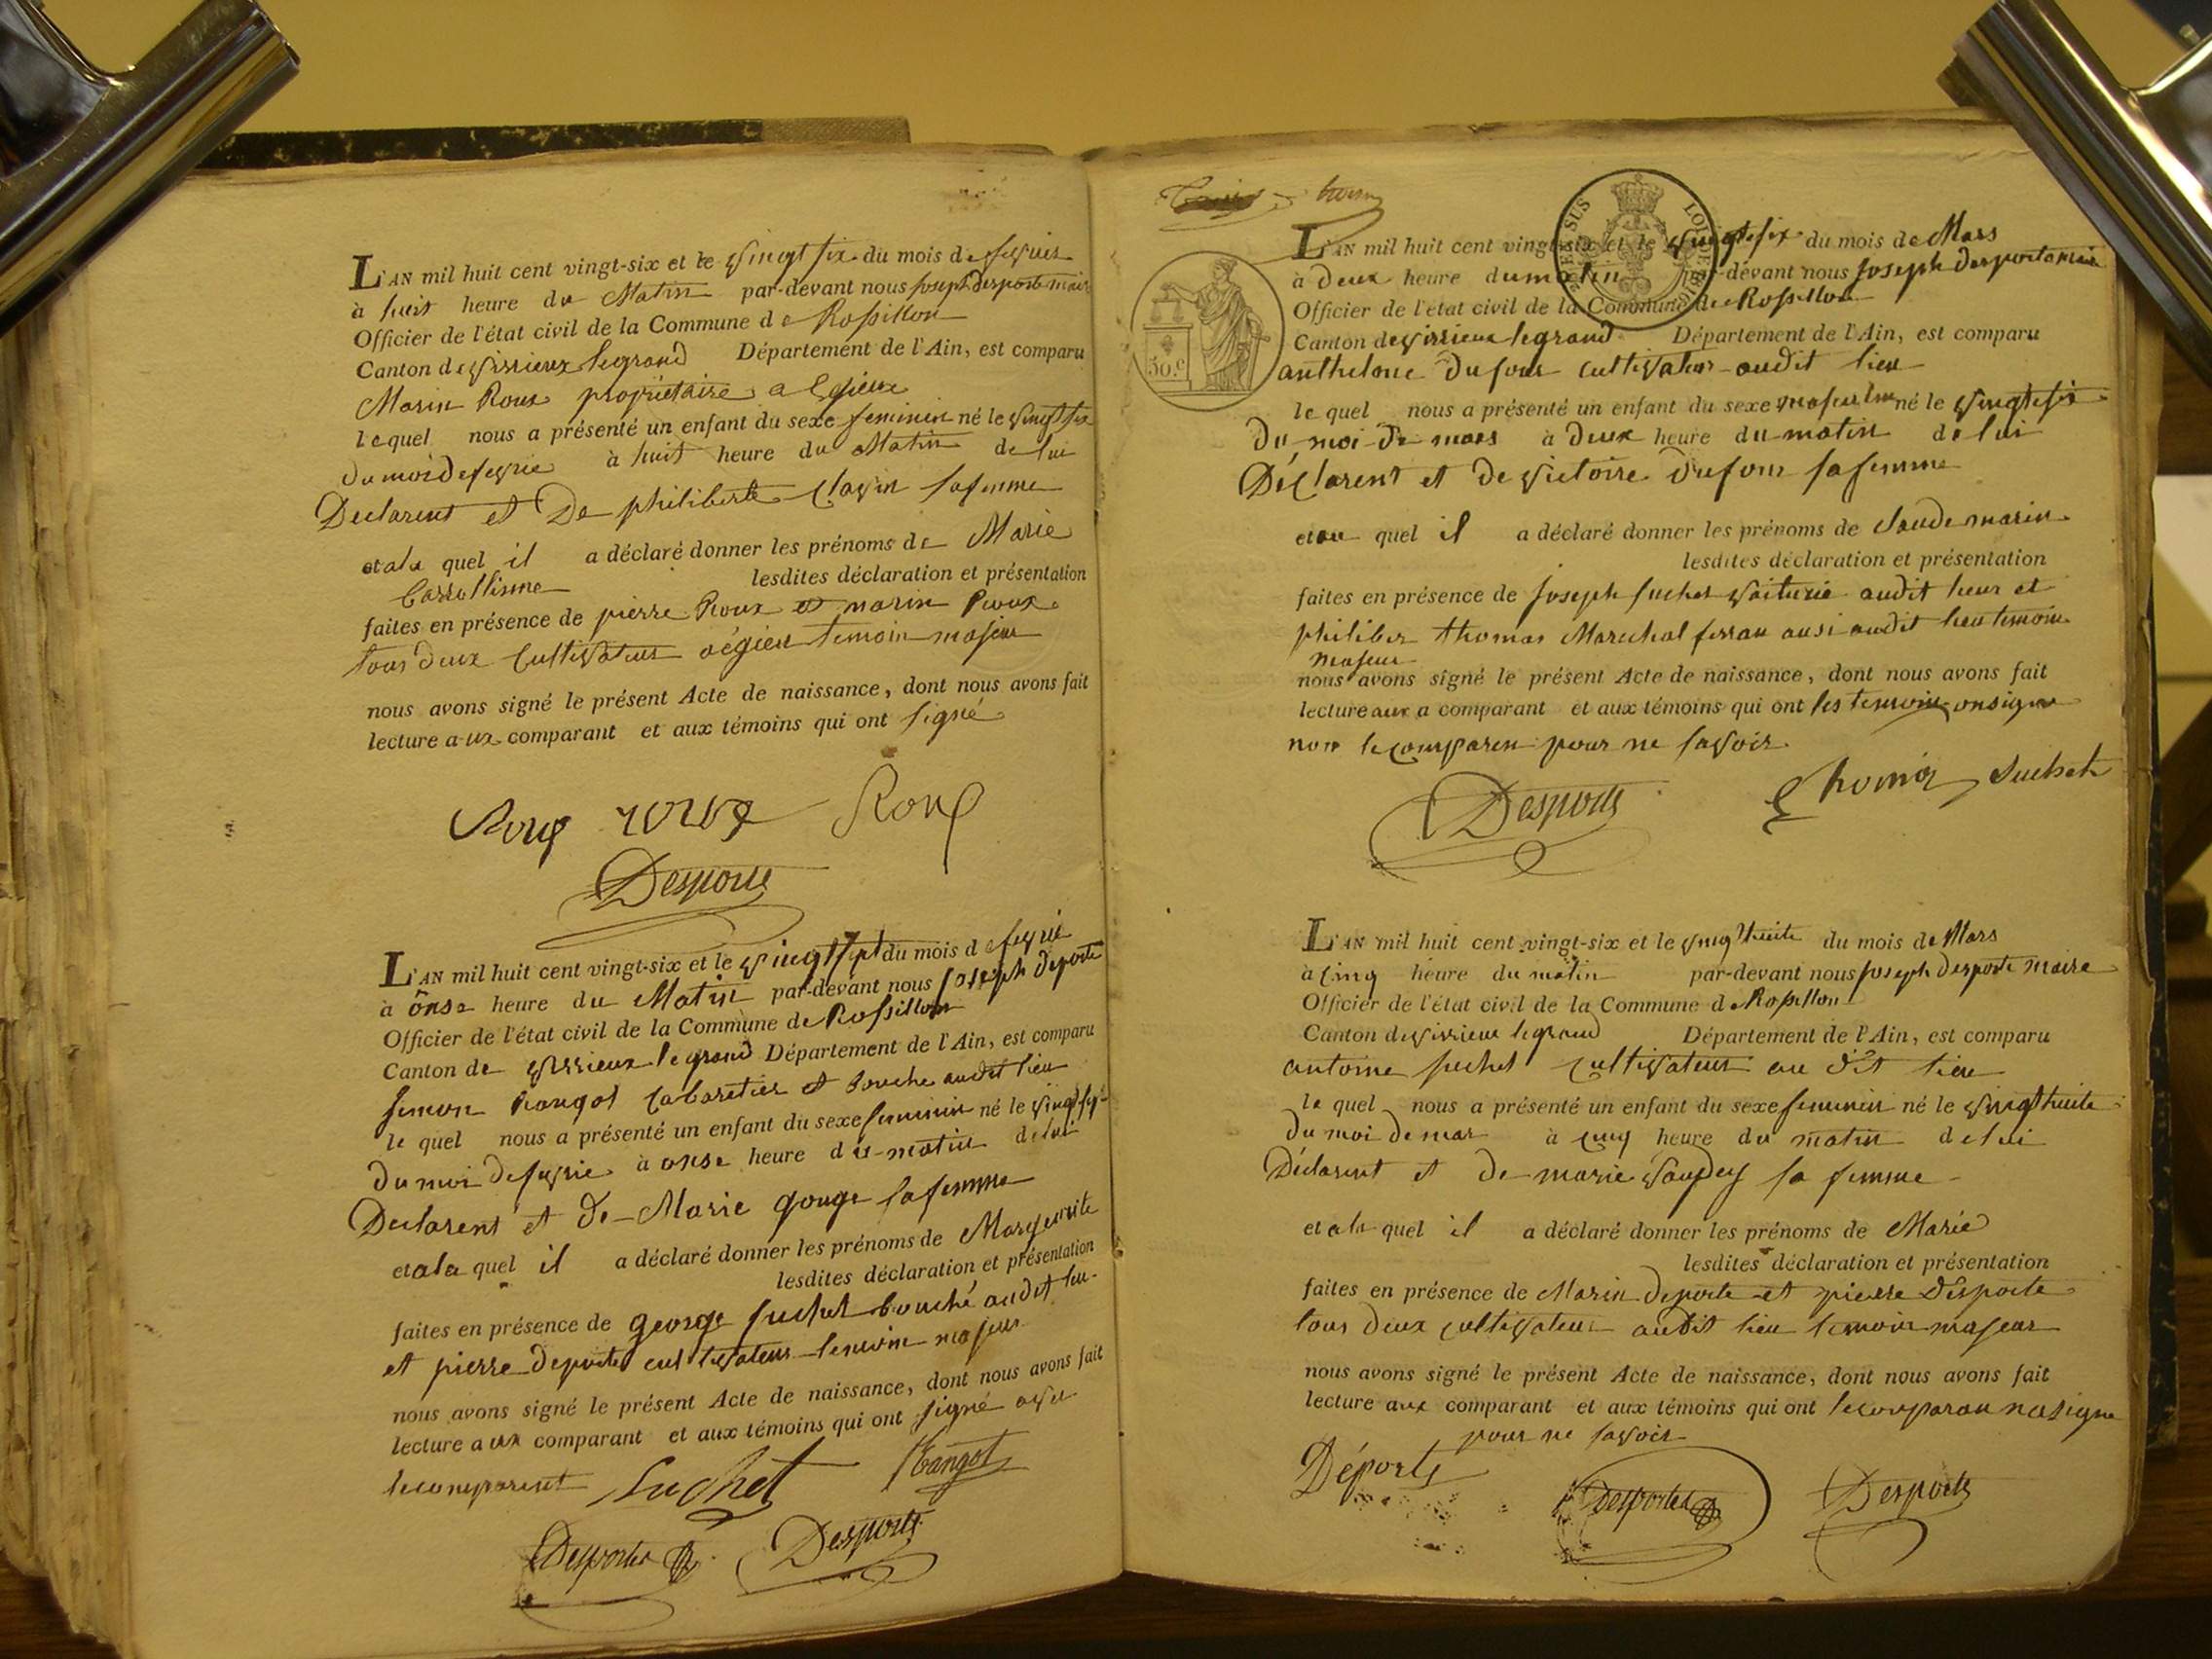 L'AN mil huit cent vingt-six et le vingt six du mois de fevrier
à huit heure du Matin par-devant nous joseph desporte maire
Officier de l'état civil de la Commune de Rossillon
Canton de virrieux legrand Département de l'Ain, est comparu
Marin Roux propriétaire a Egieux
le quel nous a présenté un enfant du sexe feminin né le vingt six
du mois de fevrie à huit heure du Matin de lui
Declarent et De philiberte clavin sa femme
et a la quel il a déclaré donner les prénoms de Marie
lesdites déclaration et présentation
faites en présence de pierre Roux et marin Roux
tous deux Cultivateur a égieu temoin majeur
nous avons signé le présent Acte de naissance, dont nous avons fait
lecture aux comparant et aux témoins qui ont signé
Roux roux Roux
Desporte
L'AN mil huit cent vingt-six et le vingt sept du mois de fevrié
à onse heure du Matin par-devant nous joseph deporte
Officier de l'état civil de la Commune de Rossillon
Canton de virrieux le grand Département de l'Ain, est comparu
simon Rangot Cabaretier et bouche audit lieu
le quel nous a présenté un enfant du sexe feminin né le vingt sept
du moi de fevrie à onse heure du matin de lui
Declarent et de Marie gouge sa femme
et a la quel il a déclaré donner les prénoms de Marguerite
lesdites déclaration et présentation
faites en présence de george suchet bouché audit lieu
et pierre deporte cultivateur temoin majeur
nous avons signé le présent Acte de naissance, dont nous avons fait
lecture aux comparant et aux témoins qui ont signé avec
le comparent Suchet Rangot
Desportes Desporte
50.c
L'AN mil huit cent vingt-six et le vingt six du mois de Mars
à Deux heure du matin par-devant nous joseph desporte maire
Officier de l'état civil de la Commune de Rossillon
Canton de virrieux legrand Département de l'Ain, est comparu
anthelme Dufour cultivateur audit lieu
le quel nous a présenté un enfant du sexe masculin né le vingt six
du moi de mars à deux heure du matin de lui
Déclarent et de victoire Dufour sa femme
et au quel il a déclaré donner les prénoms de Claude marin
lesdites déclaration et présentation
faites en présence de joseph suchet voiturié audit lieux et
philiber thomas Marechal ferran ausi audit lieu temoin
majeur
nous avons signé le présent Acte de naissance, dont nous avons fait
lecture aux comparant et aux témoins qui ont les temoin onsigné
non le comparen pour ne savoir
Desporte Thomas Suchet
L'AN mil huit cent vingt-six et le vingt huite du mois de Mars
à cinq heure du matin par-devant nous joseph desporte maire
Officier de l'état civil de la Commune de Rossillon
Canton de virrieux legrand Département de l'Ain, est comparu
antoine suchet cultivateur au dit lieu
le quel nous a présenté un enfant du sexe feminin né le vingt huite
du moi de mar à cinq heure du matin de lui
Déclarent et de marie sa femme
et a la quel il a déclaré donner les prénoms de Marie
lesdites déclaration et présentation
faites en présence de Marin deporte et pierre Desporte
tous deux cultivateur audit lieu temoin majeur
nous avons signé le présent Acte de naissance, dont nous avons fait
lecture aux comparant et aux témoins qui ont le comparan na signe
pour ne savoir
Déporte Desportes Desporte